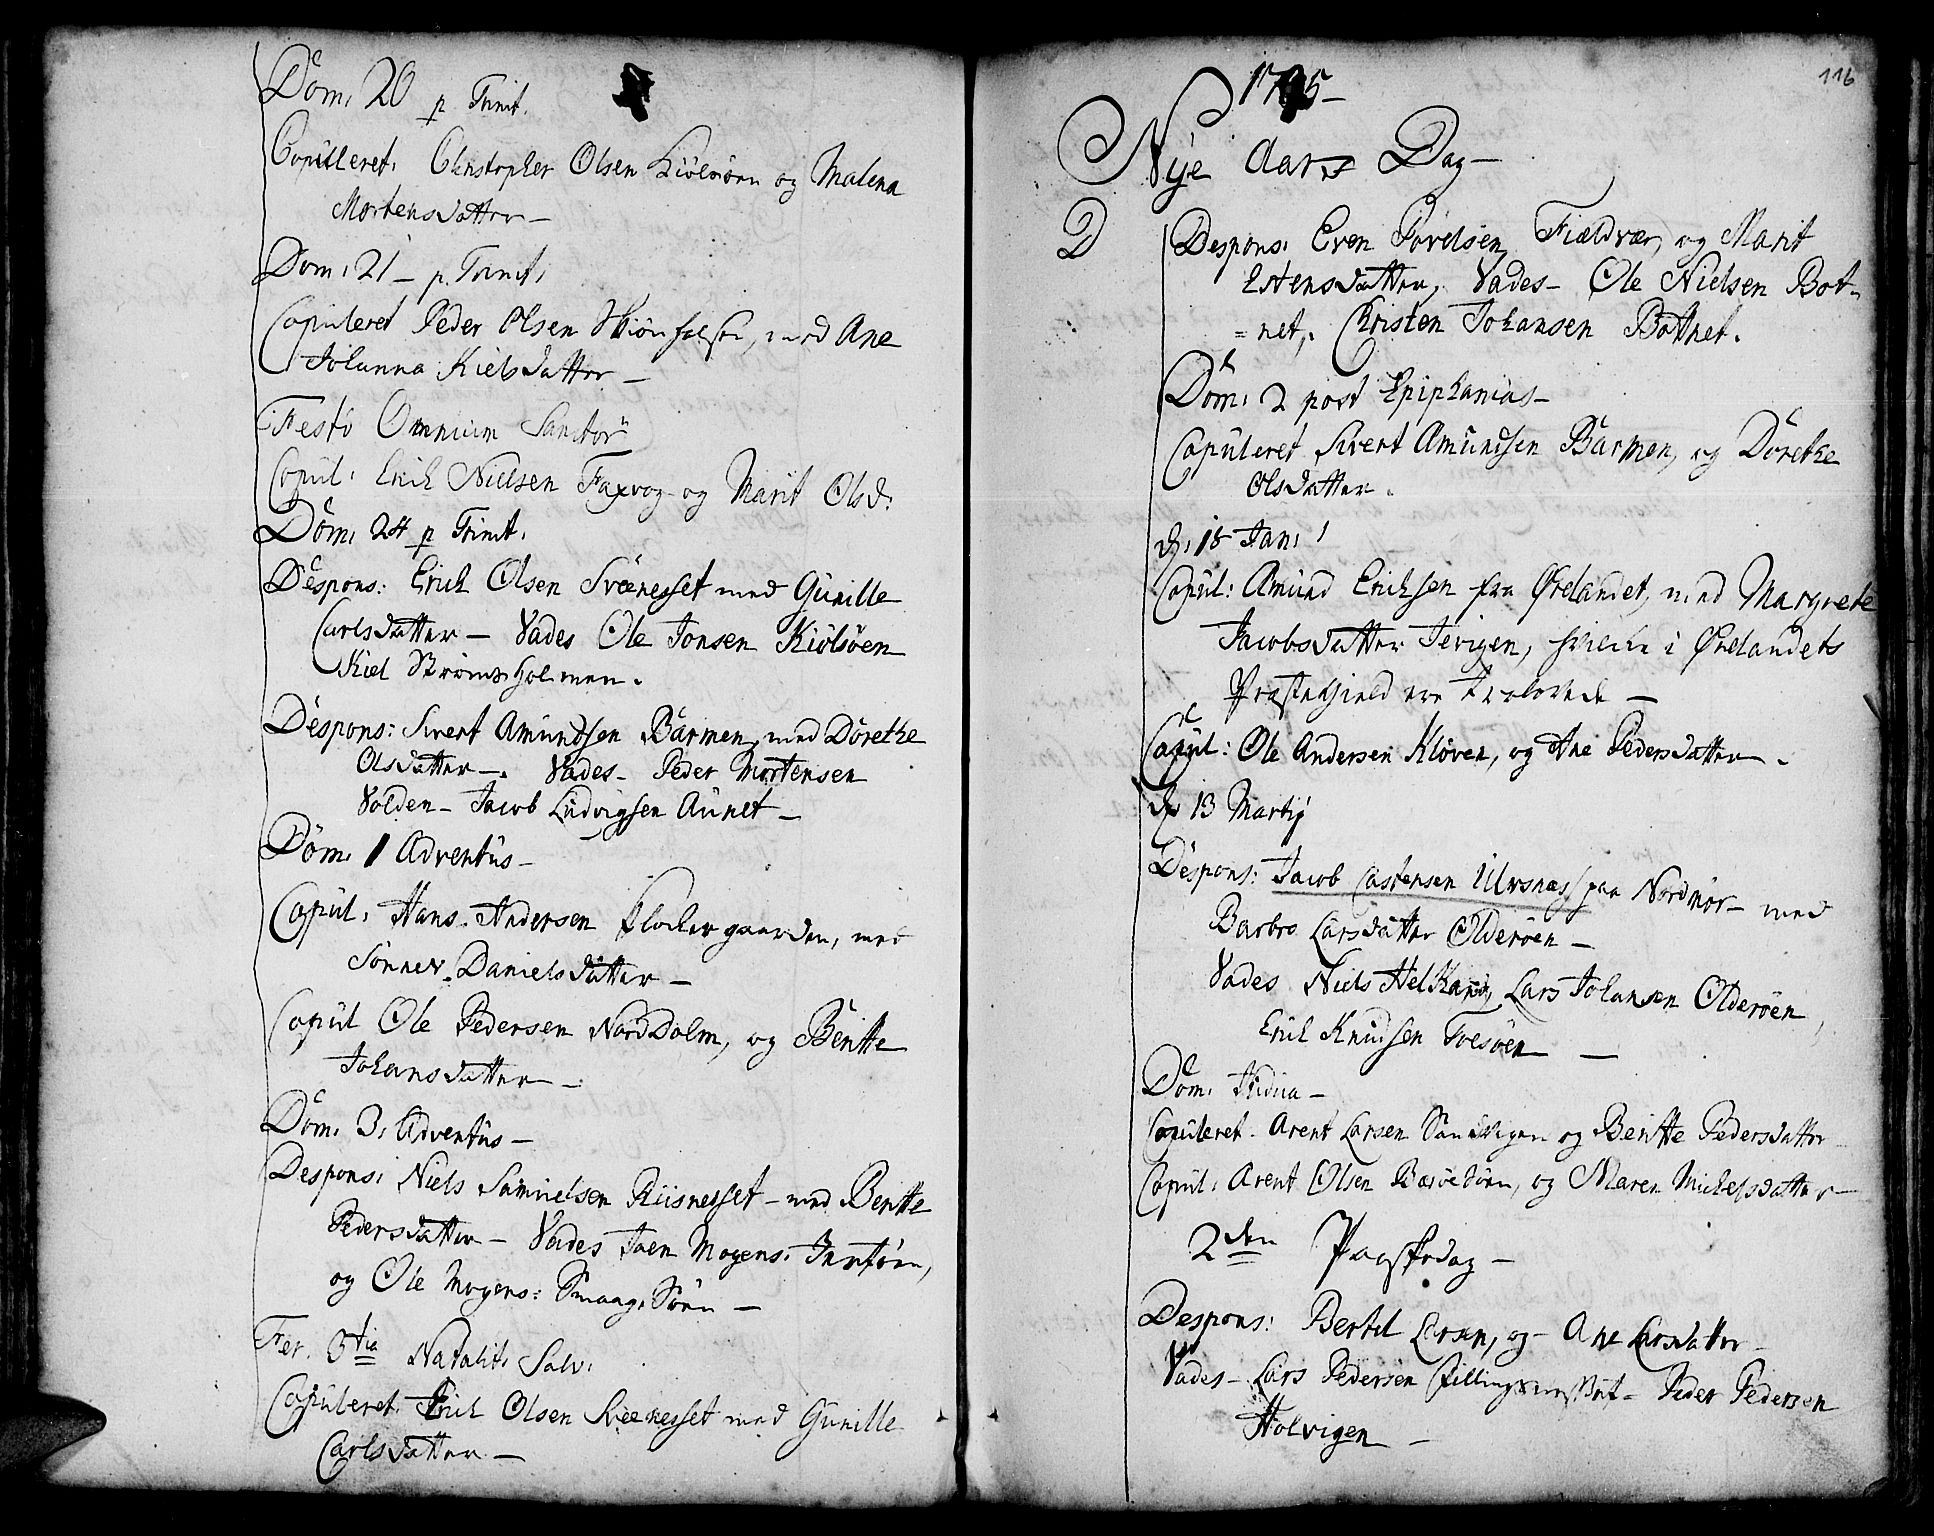 Dom: 20 p Trinit.
Copuleret. Christopher Olsen Kiølsøen og Malena
Mortensdatter —
Dom: 21 — p. Trinit:
Copuleret Peder Olsen med Ane
Johanna Kielsdatter —
Festo Omnium Sanctor
Copul: Erich Nielsen Faxvog og Marit Olsd:
Dom: 24 p Trinit.
Despons: Erich Olsen Sveenesset med Gunille
Carlsdatter — Vades Ole Jonsen Kiølsøen
Kiel Strømsholmen.
Despons: Sivert Amundsen Barmen, med Dorethe
Olsdatter —. Vades — Peder Mortensen
Volden — Jacob Ludvigsen Aunet —
Dom. 1 Adventus —
Copul. Hans Andersen Klockergaarden, med
Sønnev Danielsdatter —
Copul Ole Pedersen NordDolm, og Beritte
Johansdatter —
Dom. 3. Adventus —
Despons: Niels Samuelsen Riisnesset — med Beritte
Pedersdatter — Vades Joen Mogens:
og Ole Mogens: Smaage Søen —
Fer. 3tia Natalit: Salv:
Copuleret. Erich Olsen Sveenesset med Gunille
Carlsdatter —
116
1745 —
Nye Aars Dag —
D Despons: Even Povelsen Fieldvær, og Marit
Estensdatter, Vades — Ole Nielsen Bot-
= net,. Christen Johansen Bottnet.
Dom: 2 post Epiphanias —
Copuleret Sivert Amundsen Barmen, og Dorethe
Olsdatter.
d: 18 Jan:
Copul: Amund Erichsen fra Ørelandet, med Margrete
Jacobsdatter Tevigen, hvilke i Ørelandets
Præstegield ere Trolovede —
Copul: Ole Andersen Kløven, og Ane Pedersdatter.
d: 13 Martij
Despons: Jacob Castensen Ulvsnæs paa Nordmør — med
Barbro Larsdatter Olderøen —
Vades Niels Lars Johansen Olderøen,
Erich Knudsen Toesøen —
Dom. Judica —
Copuleret. Arent Larsen Sandvigen og Beritte Pedersdatter
Copul. Arent Olsen og Maren Michelsdatter —
2den Paaskedag —
Despons: Bertel Larsen, og — Ane Larsdatter —
Vades — Lars Pedersen — Peder Pedersen
Holvigen —